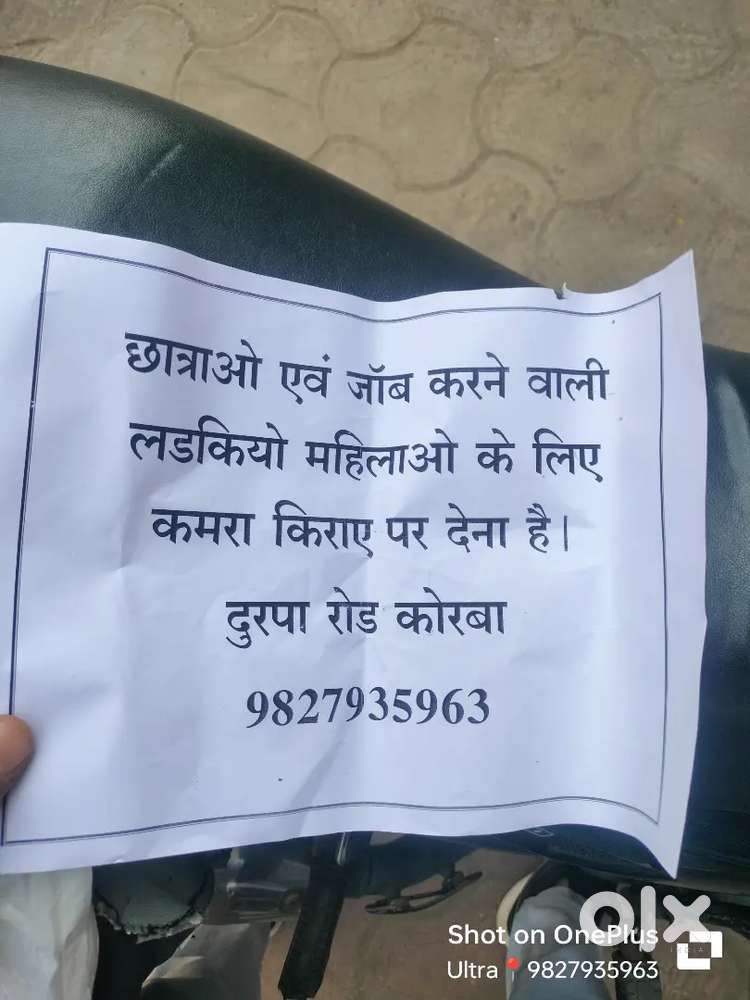 छात्राओ एवं जॉब करने वाली
लडकियो महिलाओ के लिए
कमरा किराए पर देना है।
दुरपा रोड कोरबा
9827935963
olx
Shot on OnePlus
Ultra📍9827935963